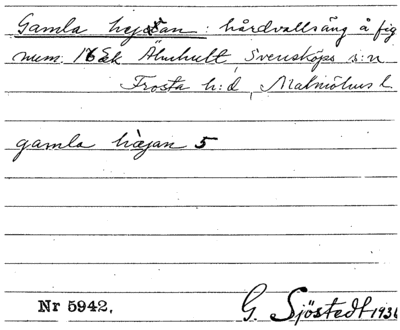 Gamla hejan: hårdvallsäng å fig
num. 16 Ek Älmhult, Svensköps s:n
Frosta h:d, Malmöhus l.
gamla hàjan 5
Nr 5942.
G. Sjöstedt 1936